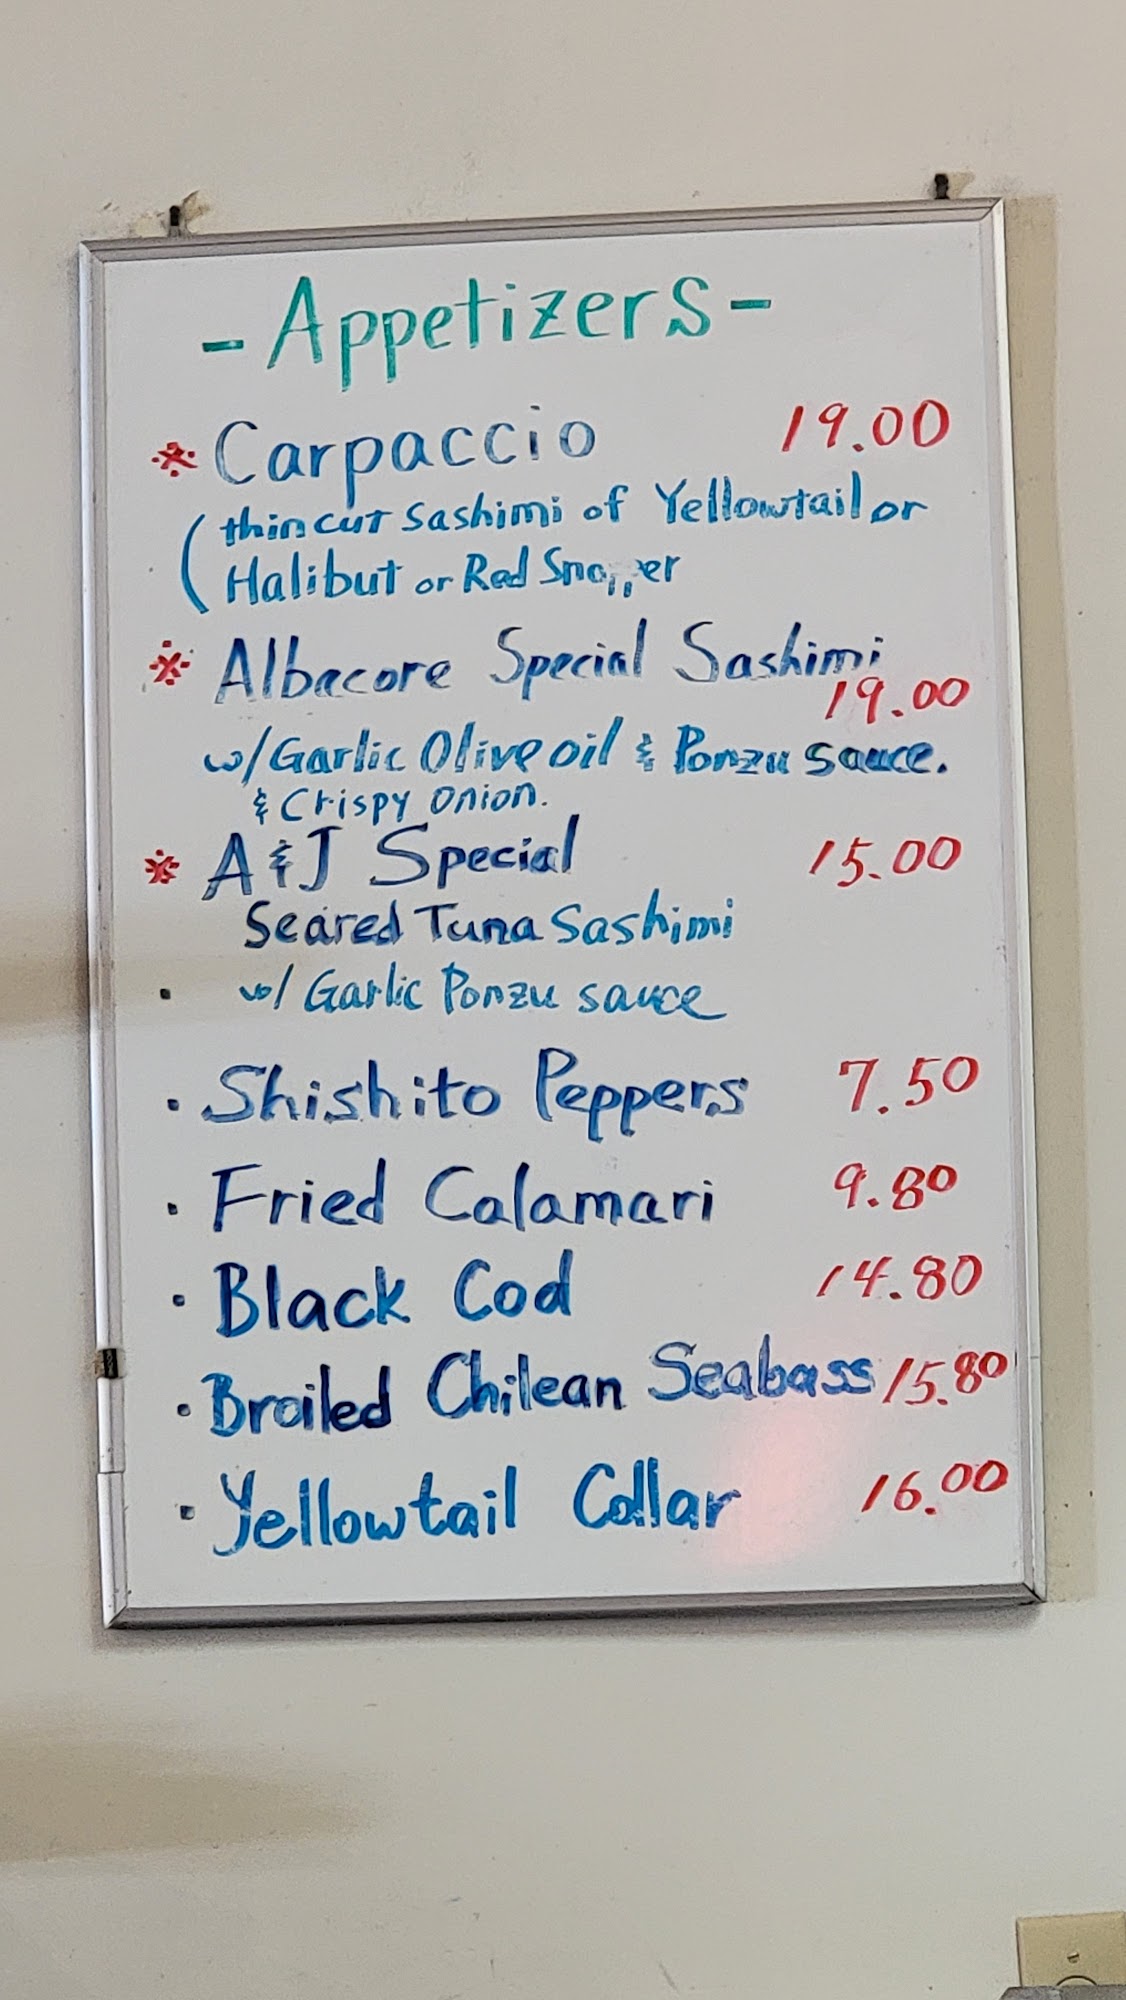 - Appetizers -
※ Carpaccio 19.00
(thin cut Sashimi of Yellowtail or
Halibut or Red Snapper
※ Albacore Special Sashimi
19.00
w/ Garlic Olive oil & Ponzu sauce.
& Crispy onion.
※ A & J Special 15.00
Seared Tuna Sashimi
· w/ Garlic Ponzu sauce
· Shishito Peppers 7.50
· Fried Calamari 9.80
· Black Cod 14.80
· Broiled Chilean Seabass 15.80
· Yellowtail Collar 16.00